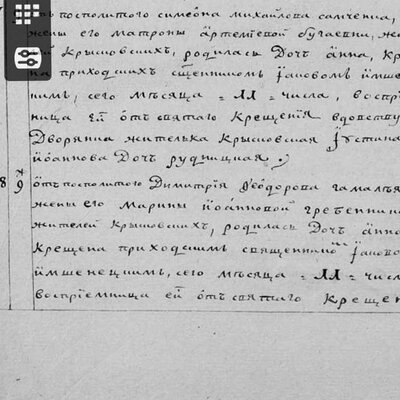 посполитого симеона михайлова самченка,
жены его матроны артемевой бугаевны, же
крысовскихъ, родилась дочь анна, кр
на приходскихъ священникомъ Іаковомъ имше
нимъ, сего мѣсяца = 11 = числа, воспрі
ница ей отъ святаго крещенія вдовству
дворянка жителька крысовская Іустина
іоаннова дочь рудницкая .
8 9 отъ посполитого димитрія Ѳеодорова гамалѣя
жены его марины іоанновой гребенник
жителей крысовскихъ, родилась дочь анна
крещена приходскимъ священникомъ Іаково
имшенецкимъ, сего мѣсяца = 11 = числа
воспріемница ей отъ святаго крещен